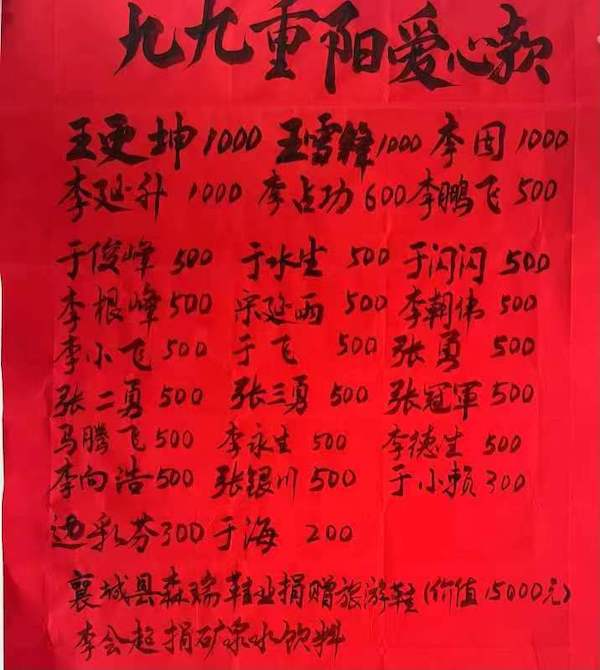 九九重阳爱心款
王更坤1000 王雪锋1000 李因1000
李延升 1000 李占功 600 李鹏飞 500
于俊峰 500 于水生 500 于闪闪 500
李根峰 500 宋延西 500 李朝伟 500
李小飞 500 于飞 500 张勇 500
张二勇 500 张三勇 500 张冠軍 500
马腾飞 500 李永生 500 李德生 500
李向浩 500 张银川 500 于小赖 300
边彩芬 300 于海 200
襄城县森瑞鞋业捐赠旅游鞋(价值15000元)
李会超捐矿泉水饮料